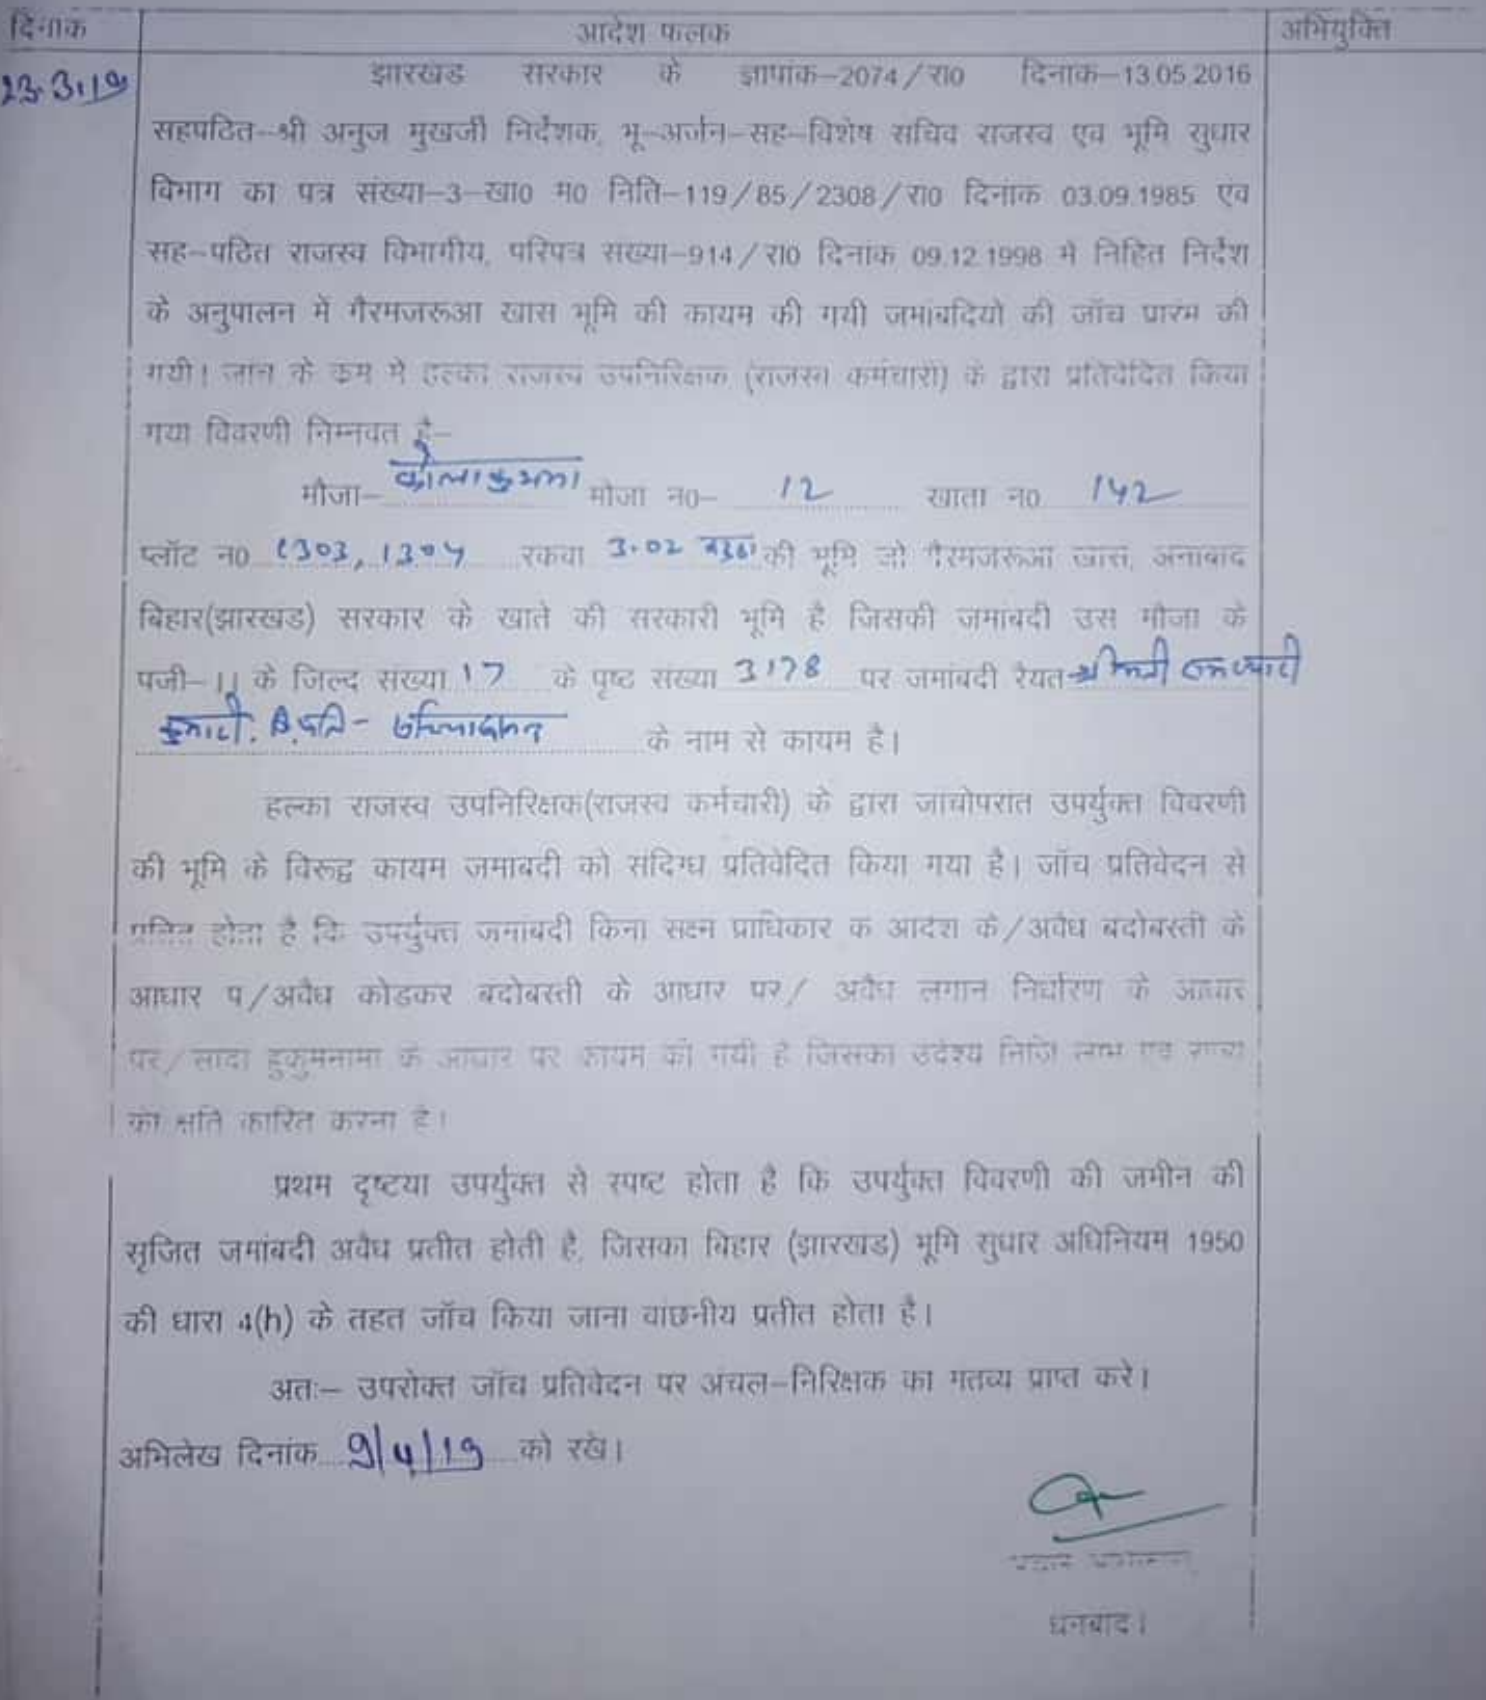 दिनांक आदेश फलक अभियुक्ति
23.3.19 झारखंड सरकार के ज्ञापांक-2074/रा0 दिनांक-13.05.2016
सहपठित-श्री अनुज मुखर्जी निर्देशक, भू-अर्जन-सह-विशेष सचिव राजस्व एवं भूमि सुधार
विभाग का पत्र संख्या-3-खा0 म0 निति-119/85/2308/रा0 दिनांक 03.09.1985 एवं
सह-पठित राजस्व विभागीय, परिपत्र संख्या-914/रा0 दिनांक 09.12.1998 में निहित निर्देश
के अनुपालन में गैरमजरूआ खास भूमि की कायम की गयी जमांबदियो की जॉच प्रारंभ की
गयी। जांच के क्रम में हल्का राजस्व उपनिरिक्षक (राजस्व कर्मचारी) के द्वारा प्रतिवेदित किया
गया विवरणी निम्नवत है-
मौजा- मौजा न0- 12 खाता न0 142
प्लॉट न0 1303, 1304 रकवा 3.02 की भूमि जो गैरमजरूआ खास, अनाबाद
बिहार(झारखंड) सरकार के खाते की सरकारी भूमि है जिसकी जमांबदी उस मौजा के
पंजी-II के जिल्द संख्या 17 के पृष्ट संख्या 3178 पर जमांबदी रैयत श्रीमती
कुमारी. पति- के नाम से कायम है।
हल्का राजस्व उपनिरिक्षक(राजस्व कर्मचारी) के द्वारा जांचोपरांत उपर्युक्त विवरणी
की भूमि के विरूद्व कायम जमाबंदी को संदिग्ध प्रतिवेदित किया गया है। जॉच प्रतिवेदन से
प्रतित होता है कि उपर्युक्त जमांबदी किना सक्ष्म प्राधिकार के आदेश के/अवैध बंदोबस्ती के
आधार प/अवैध कोडकर बंदोबस्ती के आधार पर/ अवैध लगान निर्धारण के आधार
पर/सादा हुकुमनामा के आधार पर कायम की गयी है जिसका उदेश्य निजि लाभ एवं राज्य
को क्षति कारित करना है।
प्रथम दृष्टया उपर्युक्त से स्पष्ट होता है कि उपर्युक्त विवरणी की जमीन की
सृजित जमांबदी अवैध प्रतीत होती है, जिसका बिहार (झारखंड) भूमि सुधार अधिनियम 1950
की धारा 4(h) के तहत जॉच किया जाना वांछनीय प्रतीत होता है।
अतः- उपरोक्त जॉच प्रतिवेदन पर अंचल-निरिक्षक का मंतव्य प्राप्त करे।
अभिलेख दिनांक 9/4/19 को रखे।
धनबाद।